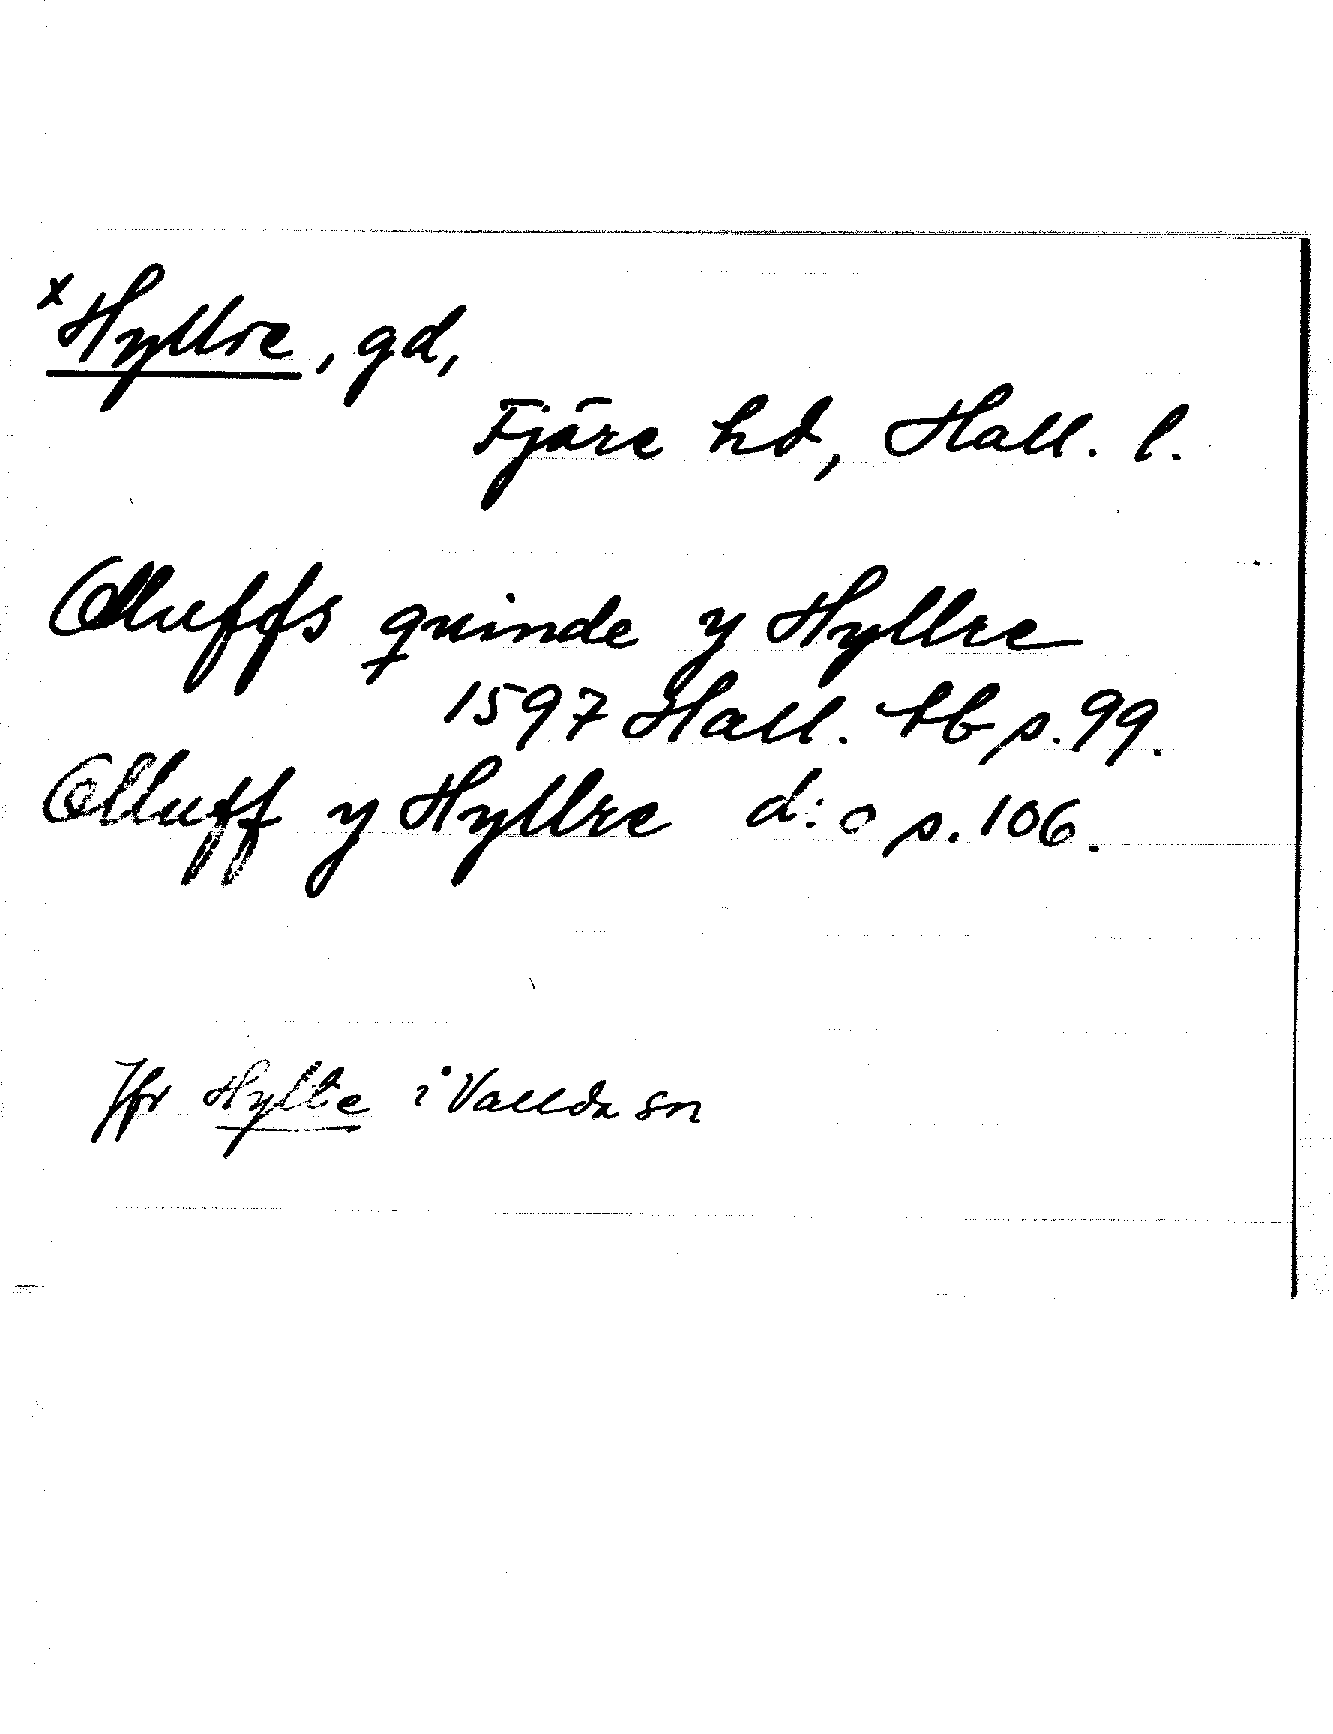 x Hyllre, gd,
Fjäre hd, Hall. l.
Olluffs quinde y Hyllre
1597 Hall. tb s. 99.
Olluff y Hyllre d:o s. 106.
Jfr Hylte i Vallda sn